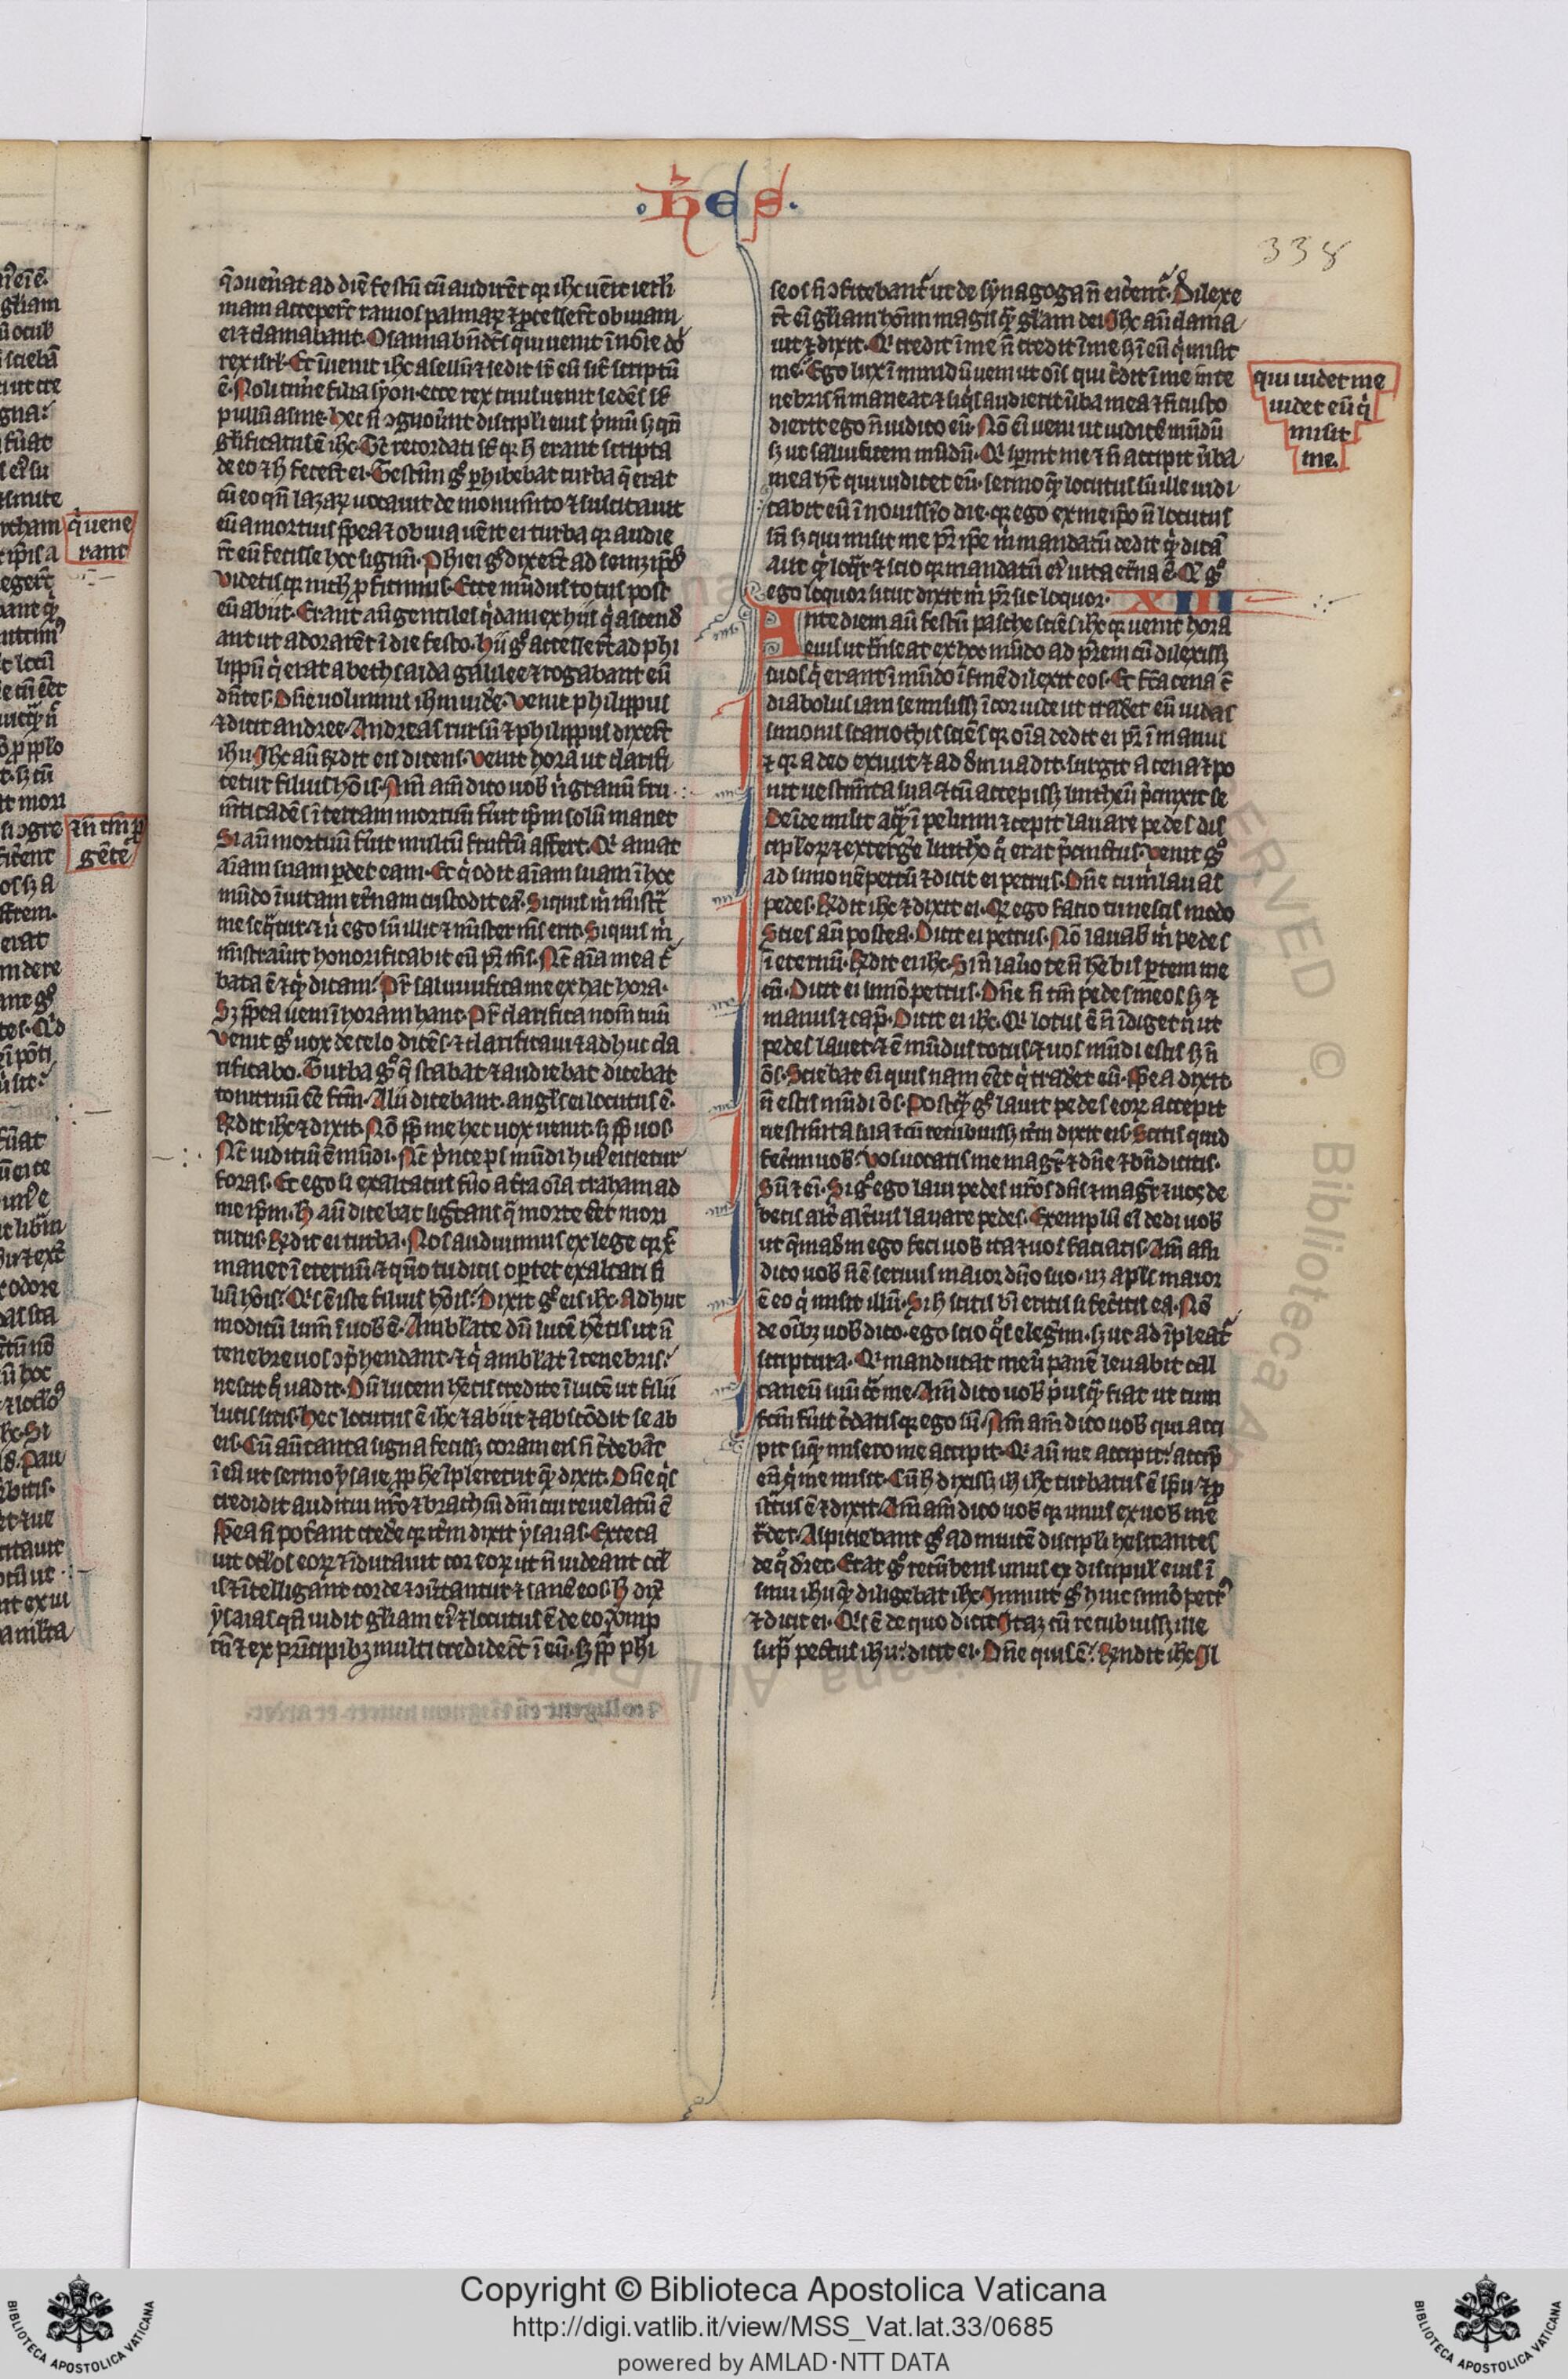 .Ih̄es.
338
q̄ ɔuen̄at ad diē festū cū audirēt qꝛ ih̄c uēit ierl̄i
mam acceper̄t ramos palmaꝝ ⁊ ꝓcesser̄t obuiam
ei ⁊ clamabant. Osanna bn̄dc̄s qui uenit ī nōie dō
rex isrl̄. Et īuenit ih̄c asellū ⁊ sedit sr̄ eū sic̄ scriptū
ē. Noli tim̄e filia syon. ecce rex tuus uenit sedēs sr̄
pullū asine. hec n̄ ɔgnouer̄t discipl̄i eius p̄mū sꝫ qn̄
gl̄ificatus ē ih̄c. Tc̄ recordati st̄ qꝛ h̄ erant scripta
de eo ⁊ h̄ fecer̄t ei. Testīm gͦ ꝑhibebat turba q̄ erat
cū eo qn̄ lazaꝝ uocauit de monum̄to ⁊ suscitauit
eū a mortuis ꝓpea ⁊ obuia uēit ei turba qꝛ audie
rt̄ eū fecisse hoc signū. Phi ei gͦ dixer̄t ad semꝫip̄os
Videtis qꝛ nich̄ ꝓficimus. Ecce mūdus totus post
eū abiit. Erant aū gentiles q̇dam ex hiis q̇ ascend̄
ant ut adorarēt ī die festo. hii gͦ accesser̄t ad phi
lippū q̇ erat a bethsaida galilee ⁊ rogabant eū
dn̄tes. Dn̄e uolumus ih̄m uid̄e. Venit philippus
⁊ dicit andree. Andreas rursū ⁊ philippus dixer̄t
ih̄u. Ih̄c aū r̄ndit eis dicens. Venit hora ut clarifi
cetur filius hōis. Am̄ am̄ dico uob̄ n̄ granū fru
m̄ti cadēs ī terram mortuū fuit ip̄m solū manet
Si aū mortuū fuit multū fructū affert. Qi amat
aīam suam ꝑdet eam. Et q̇ odit aīam suam ī hoc
mūdo ī uitam et̄nam custodit eā. Si quis m̄ m̄istr̄
me seq̄tur. ⁊ u̇ ego sū illic ⁊ m̄ister m̄s erit. Si quis m̄
m̄istrau̇it honorificabit eū pr̄ m̄s. Nc̄ aīa mea t̄
bata ē ⁊ q̇d dicam. Pr̄ saluifica me ex hac hora.
Sꝫ ꝓpea ueni ī horam hanc. Pr̄ clarifica nom̄ tuū
Venit gͦ uox de celo dicēs. ⁊ clarificaui ⁊ adhuc cla
rificabo. Turba gͦ q̄ stabat ⁊ audiebat dicebat
tonitruū eē fcm̄. Alii dicebant. angl̄s ei locutus ē.
R̄ndit ih̄c ⁊ dixit. Nō ꝓp̄ me hec uox uenit. sꝫ ꝓp̄ uos
Nc̄ iudiciū ē mūdi. Nc̄ p̄nceps mūdi hui̇ eicietur
foras. Et ego si exaltatus fūo a t̄ra oīa traham ad
me ip̄m. h̄ aū dicebat sign̄cans q̄ morte eēt mori
turus. R̄ndit ei turba. Nos audiuimus ex lege qꝛ x̄c
manet ī eternū. ⁊ quō tu dicis op̄rtet exaltari fi
liū hōis. Qis ē iste filius hōis. Dixit gͦ eis ih̄c. Adhuc
modicū lum̄ ī uob̄ ē. Amblate dū lucē hētis ut n̄
tenebre uos ɔp̄hendant. ⁊ q̇ amblat ī tenebris.
nescit q̊ uadit. Dū lucem hētis credite ī lucē ut filii
lucis sitis. Hec locutus ē ih̄c ⁊ abiit ⁊ abscōdit se ab
eis. Cū aū tanta signa fecissꝫ coram eis n̄ c̄debāt
ī eū ut sermo ysaie ꝓph̄e īpleretur quē dixit. Dn̄e q̇s
credidit auditui nr̄o ⁊ brachiū dn̄i cui reuelatū ē
ꝓpea n̄ pot̄ant cred̄e qꝛ itm̄ dixit ysaias. Exceca
uit ocl̄os eoꝝ ⁊ īdurauit cor eoꝝ ut n̄ uideant ocl̄
is ⁊ ītelligant corde ⁊ ɔūtantur ⁊ sanē eos. h̄ dix̄
ysaias qn̄ uidit gl̄iam ei̇ ⁊ locutus ē de eo. Ump
tn̄ ⁊ ex p̄ncipibꝫ multi credider̄t ī eū. sꝫ ꝓp̄ phi
seos n̄ ɔfitebant̄ ut de synagoga n̄ eic̄ent̄. Dilexe
rt̄ eī gl̄iam hōīm magis q̄ gl̄am dei. Ih̄c aū clama
uit ⁊ dixit. Qi credit ī me n̄ credit ī me sꝫ ī eū q̇ misit
me. Ego lux ī mundū ueni ut oīs qui c̄dit ī me in te
nebris n̄ maneat ⁊ siq̇s audierit ūba mea ⁊ n̄ custo
dierit ego n̄ iudico eū. Nō eī ueni ut iudicē mūdū
sꝫ ut saluificem mūdū. Qi sp̄nit me ⁊ n̄ accipit ūba
mea ht̄ qui iudicet eū. sermo quē locutus sū ille iudi
cabit eū ī nouissīo die. qꝛ ego ex me ip̄o n̄ locutus
sū sꝫ qui misit me pr̄ ip̄e m̄ mandatū dedit q̇d dicā
aut q̇d loq̄r ⁊ scio qꝛ mandatū ei̇ uita et̄na ē. Q̄ gͦ
ego loquor sicut dixit m̄ pr̄ sic loquor. XIII
Ante diem aū festū pasche sciēs ih̄c qꝛ uenit hora
eius ut t̄nseat ex hoc mūdo ad pr̄em cū dilexissꝫ
suos q̇ erant ī mūdo ī finē dilexit eos. Et fc̄a cena c̄
diabolus iam se misissꝫ ī cor iude ut trad̄et eū iudas
simonis scariothis sciēs qꝛ oīa dedit ei pr̄ ī manus
⁊ qꝛ a deo exiuit. ⁊ ad dm̄ uadit. surgit a cena ⁊ po
nit uestim̄ta sua ⁊ cū accepissꝫ lintheū p̄cinxit se
Deīde misit aq̄ ī peluim ⁊ cepit lauare pedes dis
cipl̄oꝝ ⁊ exterḡe linthō q̊ erat p̄cinctus. Venit gͦ
ad simonē petrū ⁊ dicit ei petrus. Dn̄e tu m̄ lauas
pedes. R̄ndit ih̄c ⁊ dixit ei. Q̄ ego facio tu nescis modo
Scies aū postea. Dicit ei petrus. Nō lauab̄ m̄ pedes
ī eternū. R̄ndit ei ih̄c. Si n̄ lauo te n̄ hēbis ꝑtem me
cū. Dicit ei simō petrus. Dn̄e n̄ tm̄ pedes meos sꝫ ⁊
manus ⁊ cap̄. Dicit ei ih̄c. Qi lotus ē n̄ īdiget n̄ ut
pedes lauet. ⁊ ē mūdus totus. ⁊ uos mūdi estis sꝫ n̄
ōs. Sciebat eī quis nam eēt q̇ trad̄et eū. ꝓpea dixit
n̄ estis mūdi ōs. Postq̄ gͦ lauit pedes eoꝝ accepit
uestim̄ta sua ⁊ cū recubuissꝫ itm̄ dixit eis. Scitis quid
fec̄im uob̄. Vos uocatis me magr̄ ⁊ dn̄e ⁊ bn̄ dicitis.
Sū ⁊ eī. Si gͦ ego laui pedes ur̄os dn̄s ⁊ magr̄ ⁊ uos de
betis alt̄ alt̄ius lauare pedes. Exemplū eī dedi uob̄
ut q̄madm̄ ego feci uob̄ ita ⁊ uos faciatis. Am̄ am̄
dico uob̄ n̄ ē seruus maior dn̄o suo. nꝫ apl̄s maior
ē eo q̇ misit illū. Si h̄ scitis bt̄i eritis si fec̄itis ea. Nō
de oībꝫ uob̄ dico. ego scio q̇s eleḡim. sꝫ ut adīpleat̄
scriptura. Qi manducat meū panē leuabit cal
caneū suū c̄ me. Am̄ dico uob̄ ṗusq̄ fiat ut cum
fcm̄ fuit c̄datis qꝛ ego sū. Am̄ am̄ dico uob̄ qui acci
pit siquē misero me accipit. Qi aū me accipit. accip̄
eū q̇ me misit. Cū h̄ dixissꝫ ih̄c turbatus ē sp̄u ⁊ ꝓ
⁊ dixit. Am̄ am̄ dico uob̄ qꝛ unus ex uob̄ me
t̄det. Aspiciebant gͦ ad inuicē discipl̄i hesitantes
de q̊ dic̄et. Erat gͦ recūbens unus ex discipul̄ eius ī
sinu ih̄u quē diligebat ih̄c. Innuit gͦ huic simō petr̄
⁊ dicit ei. Qis ē de quo dicit. Itaꝫ cū recubuissꝫ ille
sup̄ pectus ih̄u. dicit ei. Dn̄e quis ē. R̄ndit ih̄c. Il
q̇ uene
rant
⁊ n̄ tm̄ ꝓ
gēte
qui uidet me
uidet eū q̇
misit
me.
Copyright © Biblioteca Apostolica Vaticana
http://digi.vatlib.it/view/MSS_Vat.lat.33/0685
powered by AMLAD·NTT DATA
BIBLIOTECA APOSTOLICA VATICANA
BIBLIOTECA APOSTOLICA VATICANA